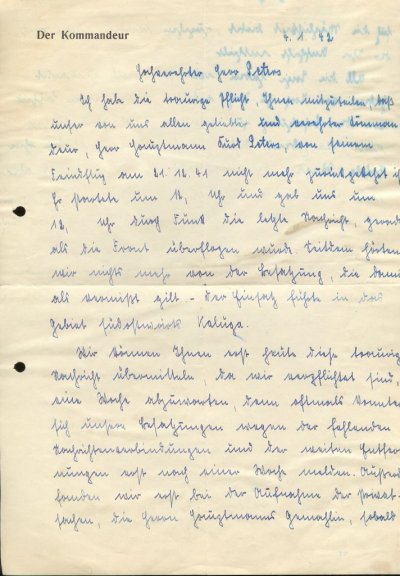 Der Kommandeur
4. 1. 42
Hochverehrter Herr Peters
Ich habe die traurige Pflicht Ihnen mitzuteilen daß
unser von uns allen geliebter und verehrter Komman
deur, Herr Hauptmann Kurt Peters von seinem
Feindflug am 21.12.41 nicht mehr zurückgekehrt i
Er startete um Uhr und gab uns um
Uhr durch Funk die letzte Nachricht, gerad
als die Front überflogen wurde. Seitdem hörten
wir nichts mehr von der Besatzung, die dami
als vermißt gilt - der Einsatz führte in das
Gebiet südostwärts Kaluga.
Wir können Ihnen erst heute diese traurig
Nachricht übermitteln, da wir verpflichtet sind,
eine Woche abzuwarten, denn oftmals konnte
sich unsere Besatzungen wegen der fehlenden
Nachrichtenverbindungen und der weiten Entfer
nungen erst nach einer Woche melden. Außerd
fanden wir erst bei der Aufnahme der Privat-
sachen, die Herrn Hauptmanns Gemahlin, sobald